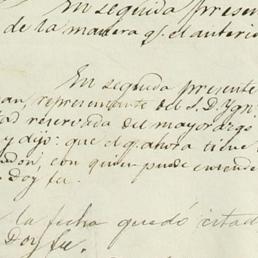 En seguida presen
de la manera q.e el anterio
En seguida presente
an, representante del S. D. Ygn
ad reservada del mayorazgo
y dijo: que el q. ahora tiene
don, con quien puede entende
Doy fe.
la fecha quedó citad
Doy fe.